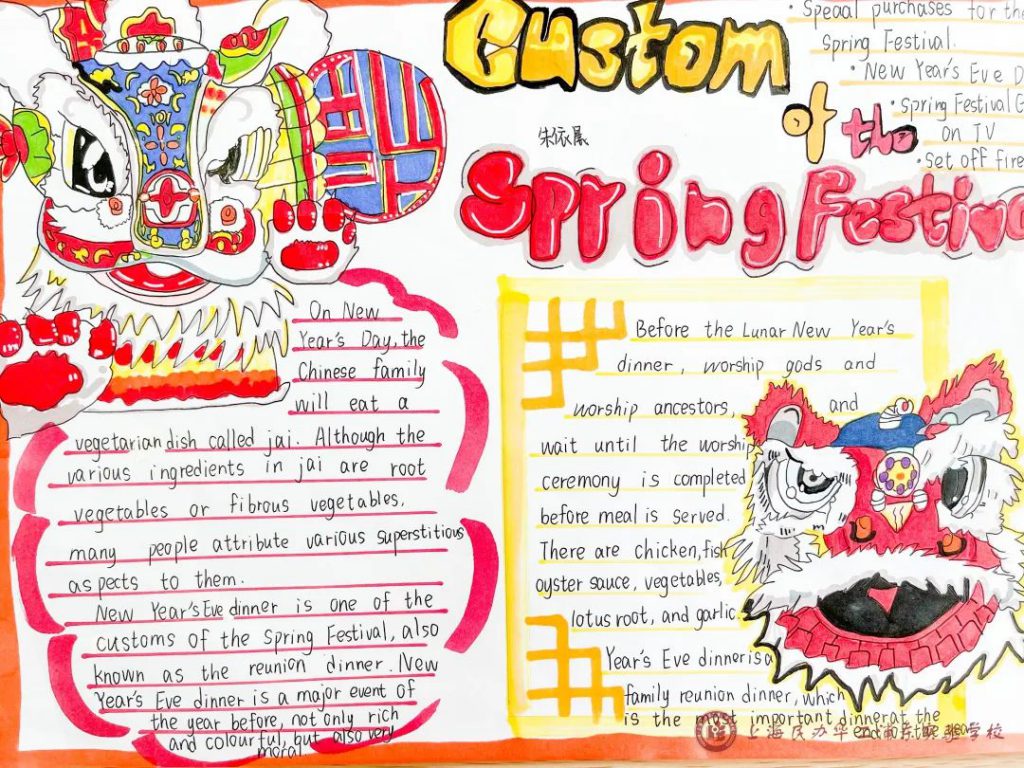 Custom
of the
Spring Festiva
朱依晨
• Speaal purchases for the
Spring Festival.
• New Year's Eve D
• Spring Festival G
on TV
• Set off fire
On New
Year's Day, the
Chinese family
will eat a
vegetarian dish called jai. Although the
various ingredients in jai are root
vegetables or fibrous vegetables,
many people attribute various superstitious
aspects to them.
New Year's Eve dinner is one of the
customs of the Spring Festival, also
known as the reunion dinner. New
Year's Eve dinner is a major event of
the year before, not only rich
and colourful, but also very
moral.
Before the Lunar New Year's
dinner, worship gods and
worship ancestors, and
wait until the worship
ceremony is completed
before meal is served.
There are chicken, fish
oyster sauce, vegetables,
lotus root, and garlic.
Year's Eve dinner is a
family reunion dinner, which
is the most important dinner at the
end
上海民办华
学校